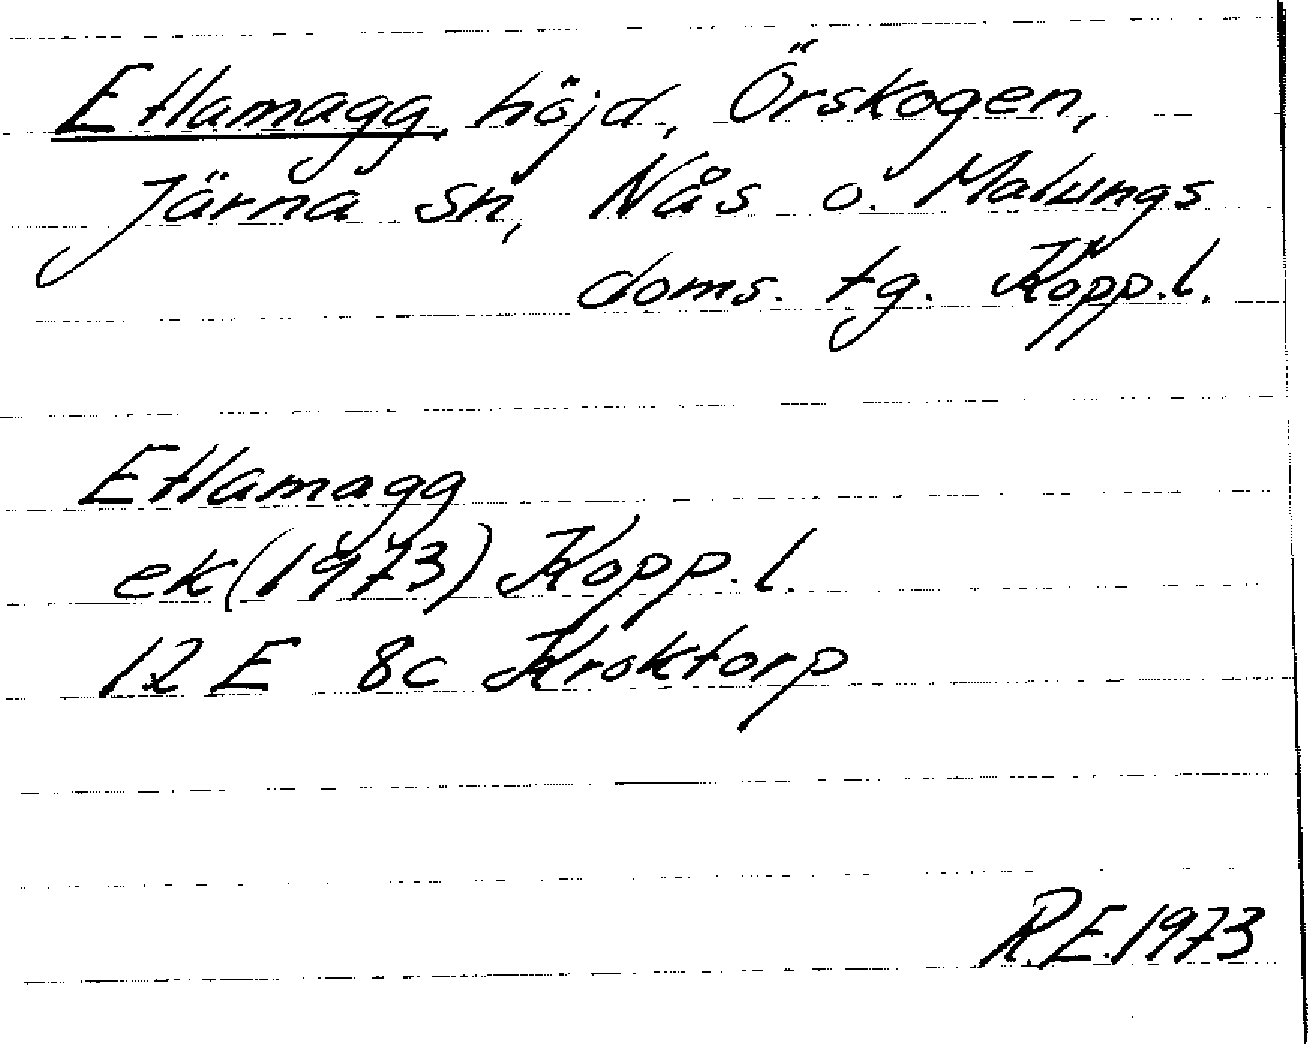 Etlamagg, höjd, Örskogen,
Järna sn, Nås o. Malungs
doms. tg. Kopp.l.
Etlamagg
ek(1973) Kopp.l.
12 E 8c Kroktorp
R.E.1973